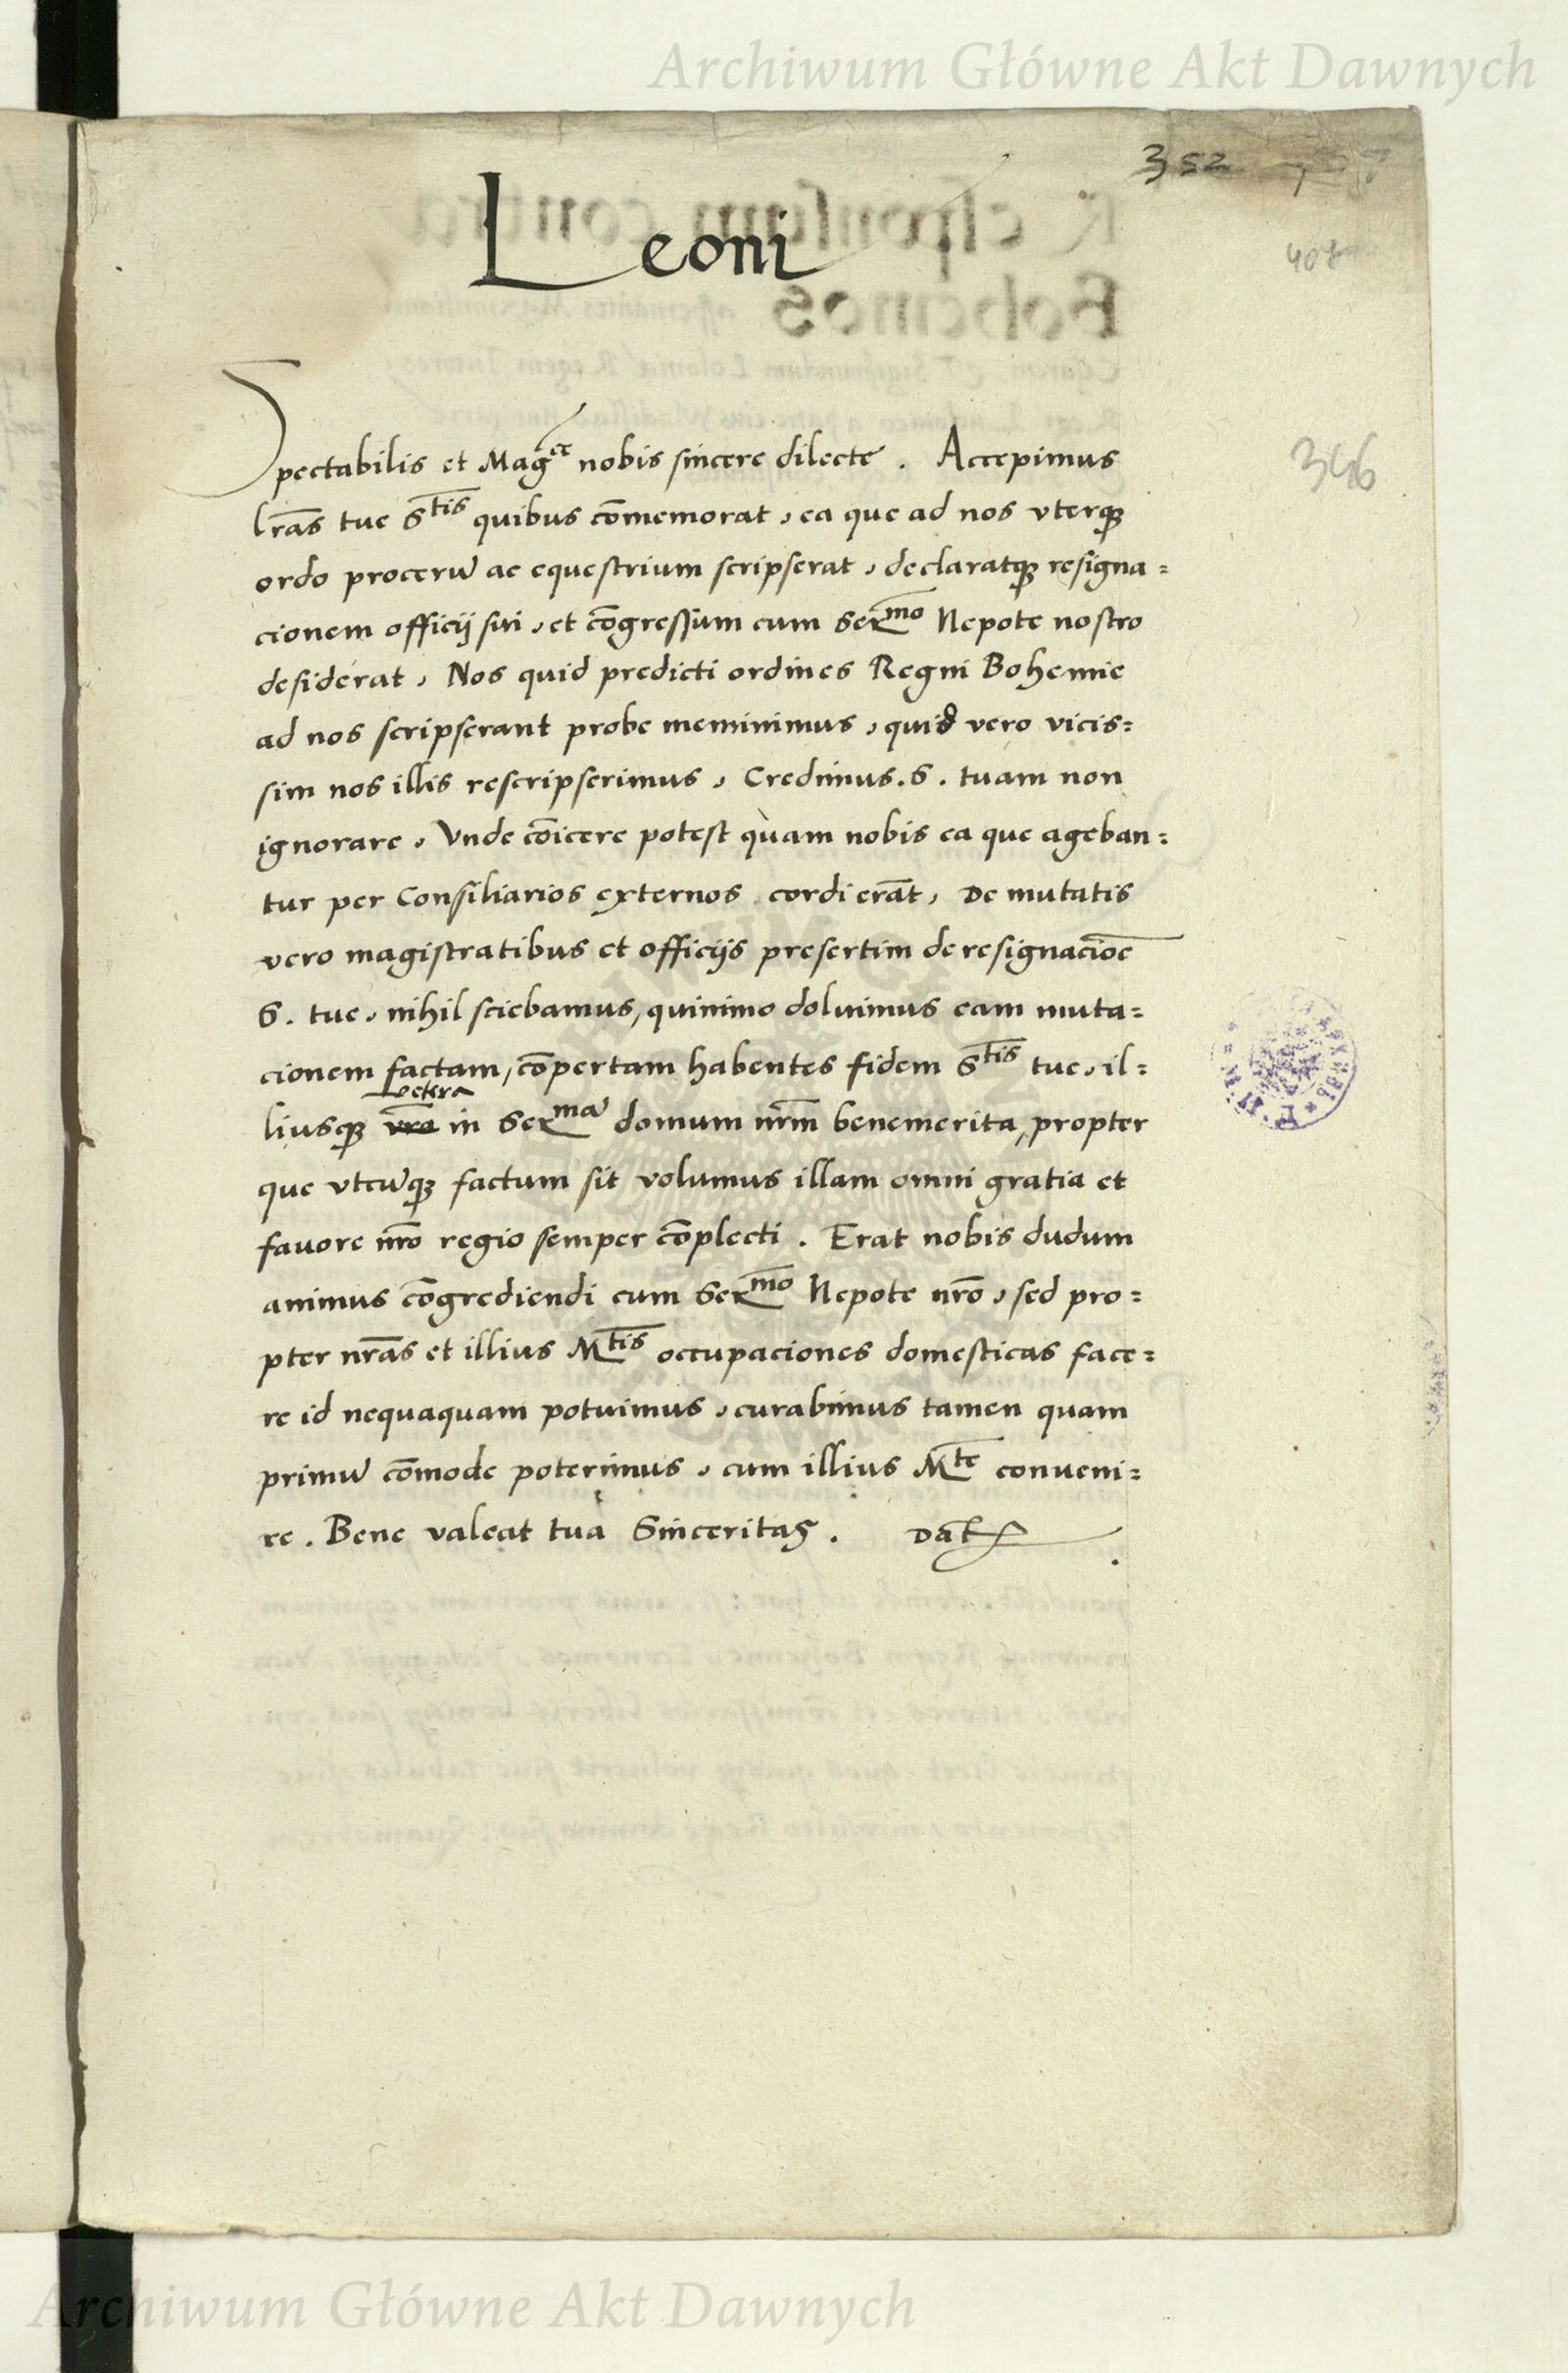 Archiwum Główne Akt Dawnych
352
Leoni
407
Spectabilis et Mag^ce nobis sincere dilecte . Accepimus
346
lr̃as tue S^tis quibus cõmemorat, ea que ad nos vterqꝫ
ordo procerũ ac equestrium scripserat, declaratqꝫ resigna=
cionem officij sui, et cõgressum cum Ser^mo Nepote nostro
desiderat, Nos quid predicti ordines Regni Bohemie
ad nos scripserant probe meminimus, quid vero vicis=
sim nos illis rescripserimus, Credimus .S. tuam non
ignorare, Vnde cõicere potest quàm nobis ea que ageban=
tur per Consiliarios externos cordi erãt, De mutatis
vero magistratibus et officijs presertim de resignaciõe
S. tue, nihil sciebamus, quinimo doluimus eam muta=
cionem factam, cõpertam habentes fidem S^tis tue, il=
vetera
liusqꝫ vr̃a in Ser^mã domum nr̃m benemerita, propter
que vtcũqꝫ factum sit volumus illam omni gratia et
favore nr̃o regio semper cõplecti . Erat nobis dudum
animus cõgrediendi cum Ser^mo Nepote nr̃o, sed pro=
pter nr̃as et illius M^tis occupaciones domesticas face=
re id nequaquam potuimus, curabimus tamen quam
primũ cõmode poterimus, cum illius M^te conveni=
re . Bene valeat tua Sinceritas . Dat
Archiwum Główne Akt Dawnych